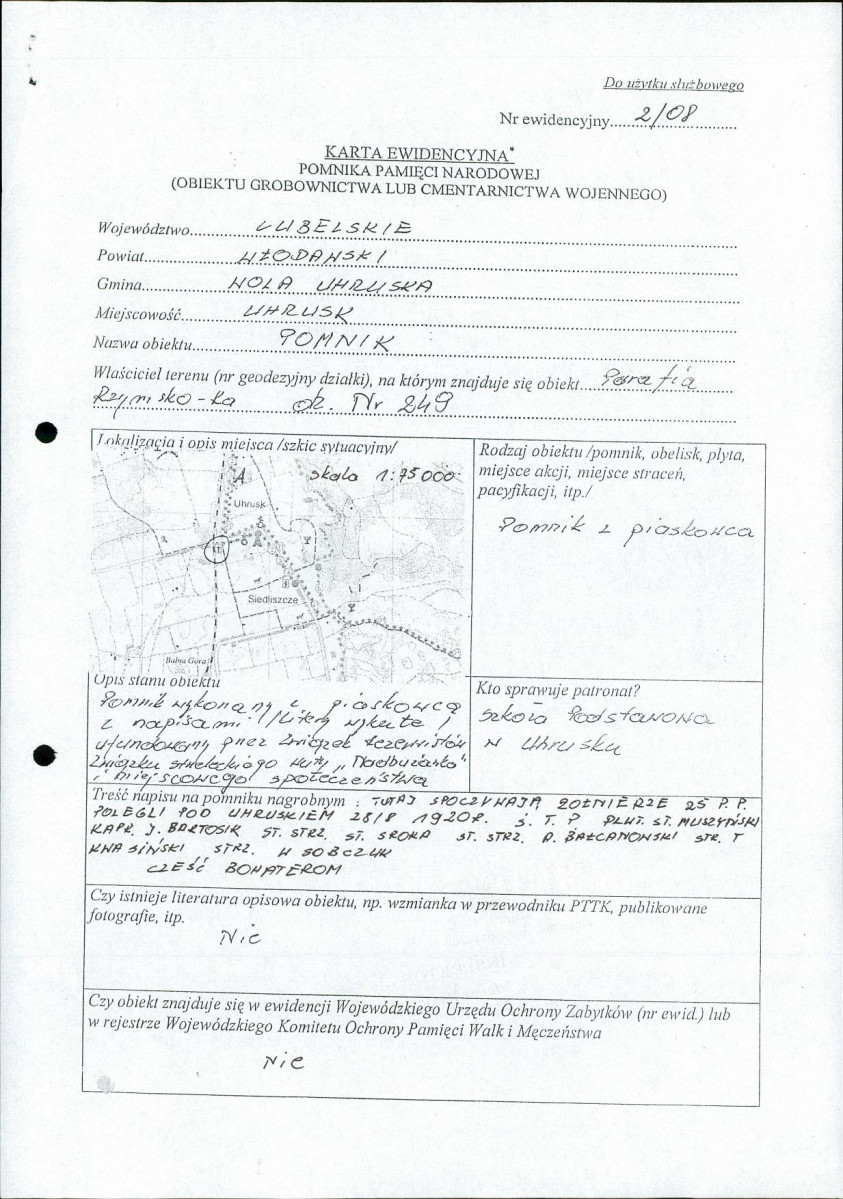 Do użytku służbowego
Nr ewidencyjny 2/08
KARTA EWIDENCYJNA*
POMNIKA PAMIĘCI NARODOWEJ
(OBIEKTU GROBOWNICTWA LUB CMENTARNICTWA WOJENNEGO)
Województwo LUBELSKIE
Powiat WŁODAWSKI
Gmina WOLA UHRUSKA
Miejscowość UHRUSK
Nazwa obiektu POMNIK
Właściciel terenu (nr geodezyjny działki), na którym znajduje się obiekt Parafia
Rzymsko-Ka dz. Nr 249
Lokalizacja i opis miejsca /szkic sytuacyjny/
skala 1:75 000
Uhrusk
Siedliszcze
Babia Góra
Rodzaj obiektu /pomnik, obelisk, płyta,
miejsce akcji, miejsce straceń,
pacyfikacji, itp./
Pomnik z piaskowca
Opis stanu obiektu
Pomnik wykonany z piaskowca
z napisami /litery wykute/
ufundowany przez Związek Rezerwistów
Związku strzeleckiego Huty „Nadbużanka"
i miejscowego społeczeństwa
Kto sprawuje patronat?
Szkoła Podstawowa
w Uhrusku
Treść napisu na pomniku nagrobnym : TUTAJ SPOCZYWAJĄ ŻOŁNIERZE 25 P.P.
POLEGLI POD UHRUSKIEM 28/8 1920r. Ś. T. P. PLUT. ST. MUSZYŃSKI
KAPR. J. BARTOSIK ST. STRZ. ST. SROKA ST. STRZ. A. BAŁCANOWSKI STR. T
KWASIŃSKI STRZ. W SOBCZUK
CZEŚĆ BOHATEROM
Czy istnieje literatura opisowa obiektu, np. wzmianka w przewodniku PTTK, publikowane
fotografie, itp.
Nie
Czy obiekt znajduje się w ewidencji Wojewódzkiego Urzędu Ochrony Zabytków (nr ewid.) lub
w rejestrze Wojewódzkiego Komitetu Ochrony Pamięci Walk i Męczeństwa
Nie